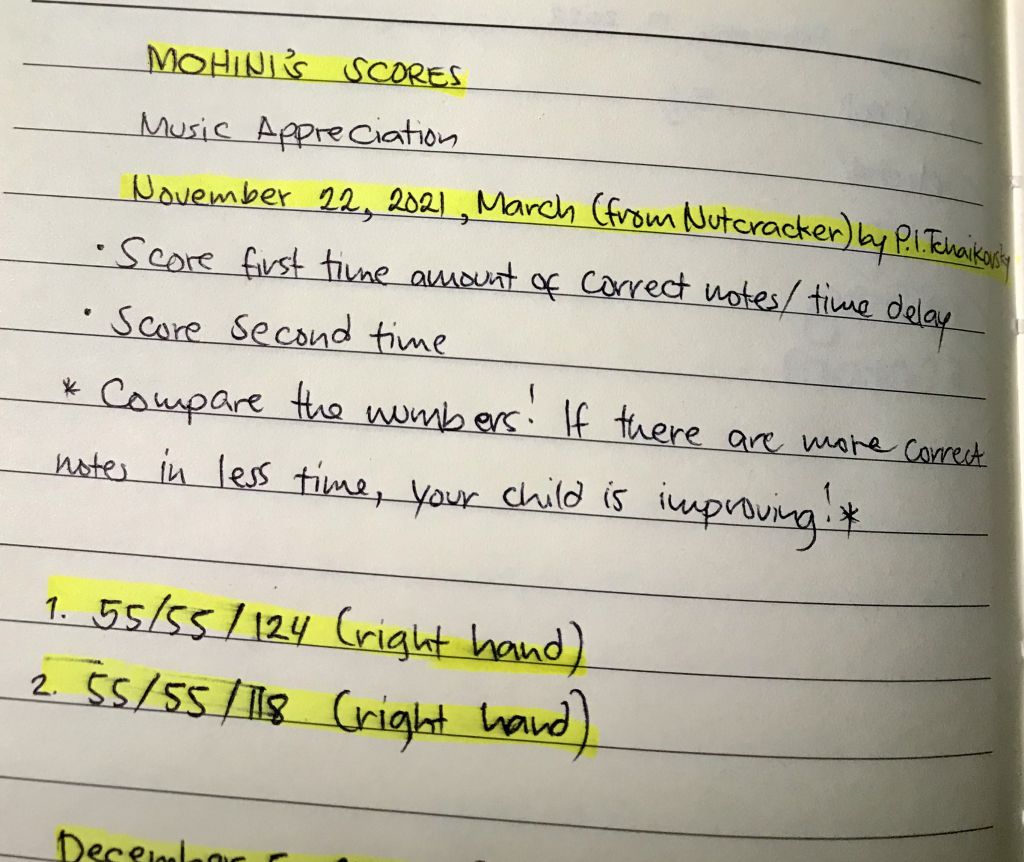 MOHINI'S SCORES
Music Appreciation
November 22, 2021, March (from Nutcracker) by P.I. Tchaikovsky
• Score first time amount of correct notes/ time delay
• Score second time
* Compare the numbers! If there are more correct
notes in less time, your child is improving! *
1. 55/55/124 (right hand)
2. 55/55/118 (right hand)
December 5,